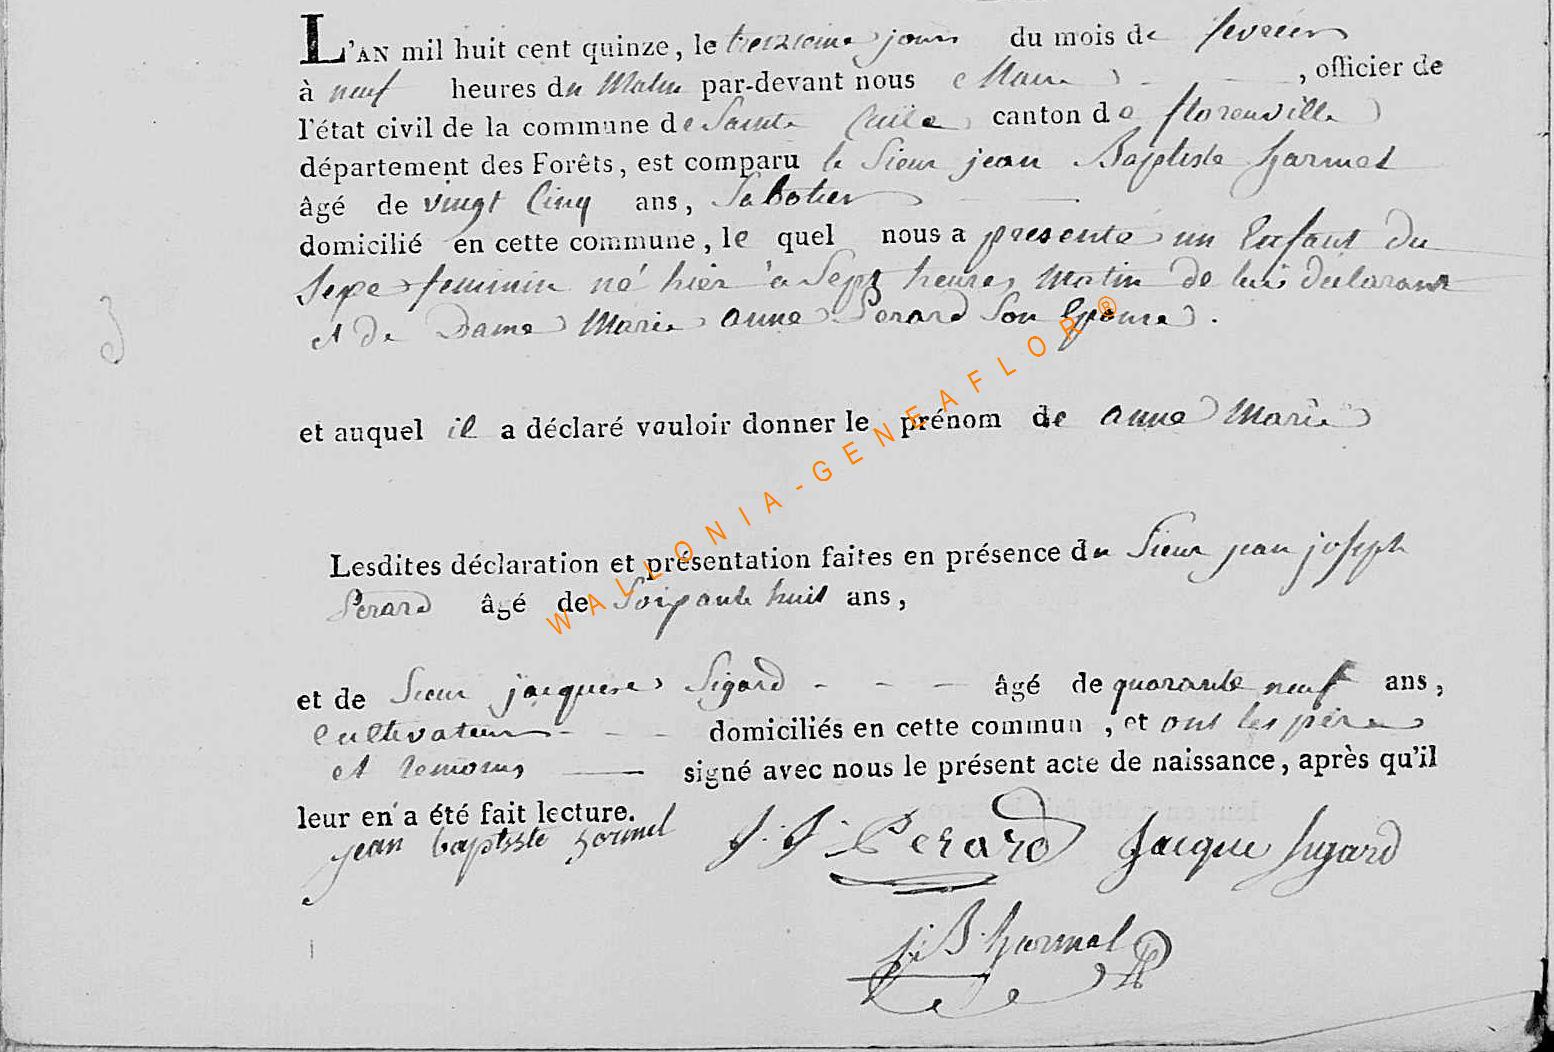 L'AN mil huit cent quinze, le treizieme jours du mois de fevrier
à neuf heures du Matin par-devant nous Maire, officier de
l'état civil de la commune de Sainte Cecile canton de florenville
département des Forêts, est comparu le Sieur jean Baptiste harmel
âgé de vingt Cinq ans, Sabotier
domicilié en cette commune, le quel nous a presenté un Enfant du
Sexe feminin né hier à Sept heures Matin de lui déclarant
et de Dame Marie anne Perard Son Epouse.
et auquel il a déclaré vouloir donner le prénom de anne Marie
Lesdites déclaration et présentation faites en présence du Sieur jean joseph
Perard âgé de Soixante huit ans,
et de Sieur jacques Sigard - - - âgé de quarante neuf ans,
Cultivateur - - - domiciliés en cette commun, et ont les père
et temoins signé avec nous le présent acte de naissance, après qu'il
leur en a été fait lecture.
jean baptiste hormel J. J. Perard Jacque Sigard
J. B. harmel
WALLONIA-GENEAFLOR®